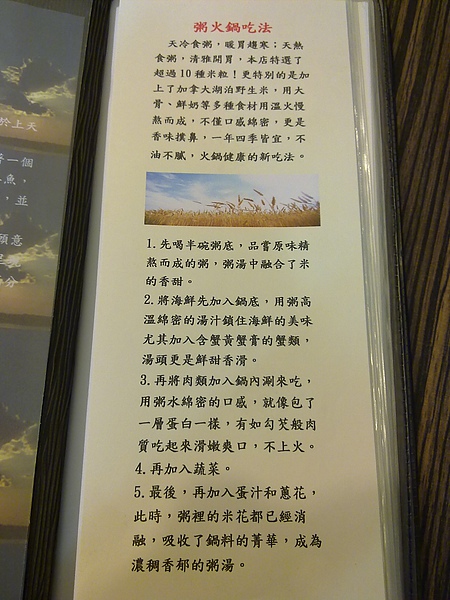 粥火鍋吃法
天冷食粥，暖胃趨寒；天熱
食粥，清雅開胃，本店特選了
超過10種米粒！更特別的是加
上了加拿大湖泊野生米，用大
骨、鮮奶等多種食材用溫火慢
熬而成，不僅口感綿密，更是
香味撲鼻，一年四季皆宜，不
油不膩，火鍋健康的新吃法。
1.先喝半碗粥底，品嘗原味精
熬而成的粥，粥湯中融合了米
的香甜。
2.將海鮮先加入鍋底，用粥高
溫綿密的湯汁鎖住海鮮的美味
尤其加入含蟹黃蟹膏的蟹類，
湯頭更是鮮甜香滑。
3.再將肉類加入鍋內涮來吃，
用粥水綿密的口感，就像包了
一層蛋白一樣，有如勾芡般肉
質吃起來滑嫩爽口，不上火。
4.再加入蔬菜。
5.最後，再加入蛋汁和蔥花，
此時，粥裡的米花都已經消
融，吸收了鍋料的菁華，成為
濃稠香郁的粥湯。
於上天
一個
魚，
，並
願意
分